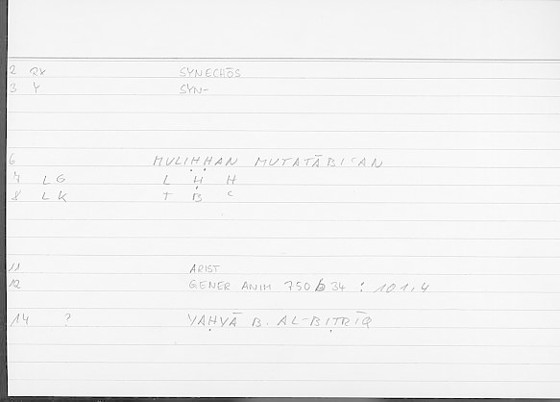 2 RX SYNECHŌS
3 Y SYN-
6 MULIḤḤAN MUTATĀBIʿAN
7 LG L Ḥ Ḥ
8 LK T B ʿ
11 ARIST
12 GENER ANIM 750b34 : 101,4
14 ? YAḤYĀ B. AL-BIṬRĪQ